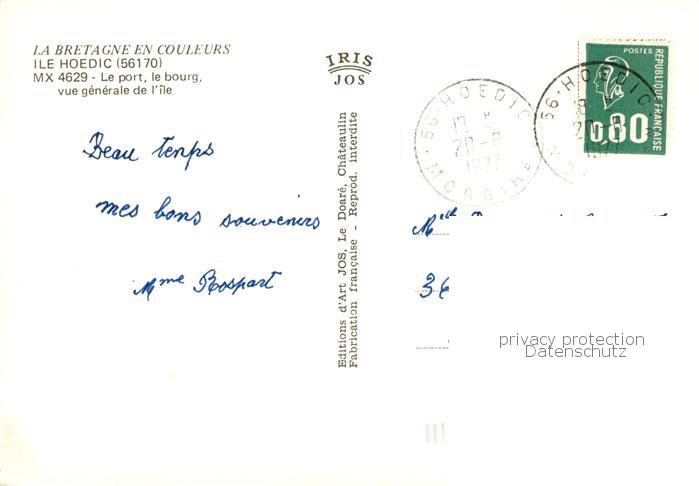 LA BRETAGNE EN COULEURS
ILE HOEDIC (56170)
MX 4629 - Le port, le bourg,
vue générale de l'île
IRIS
JOS
Beau temps
mes bons souvenirs
Mme Rospart
Editions d'Art JOS, Le Doaré, Châteaulin
Fabrication française - Reprod. Interdite
56-HOEDIC
20-8
1977
MORBIHAN
56-HOEDIC
POSTES
REPUBLIQUE FRANÇAISE
0,80
Melle
36
privacy protection
Datenschutz